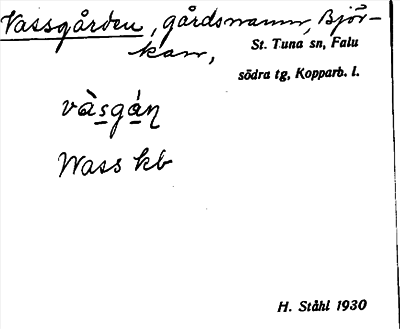 Vassgården, gårdsnamn, Björ-
kan,
St. Tuna sn, Falu
södra tg, Kopparb. l.
và̱sgá̱ɳ
Wass kb
H. Ståhl 1930